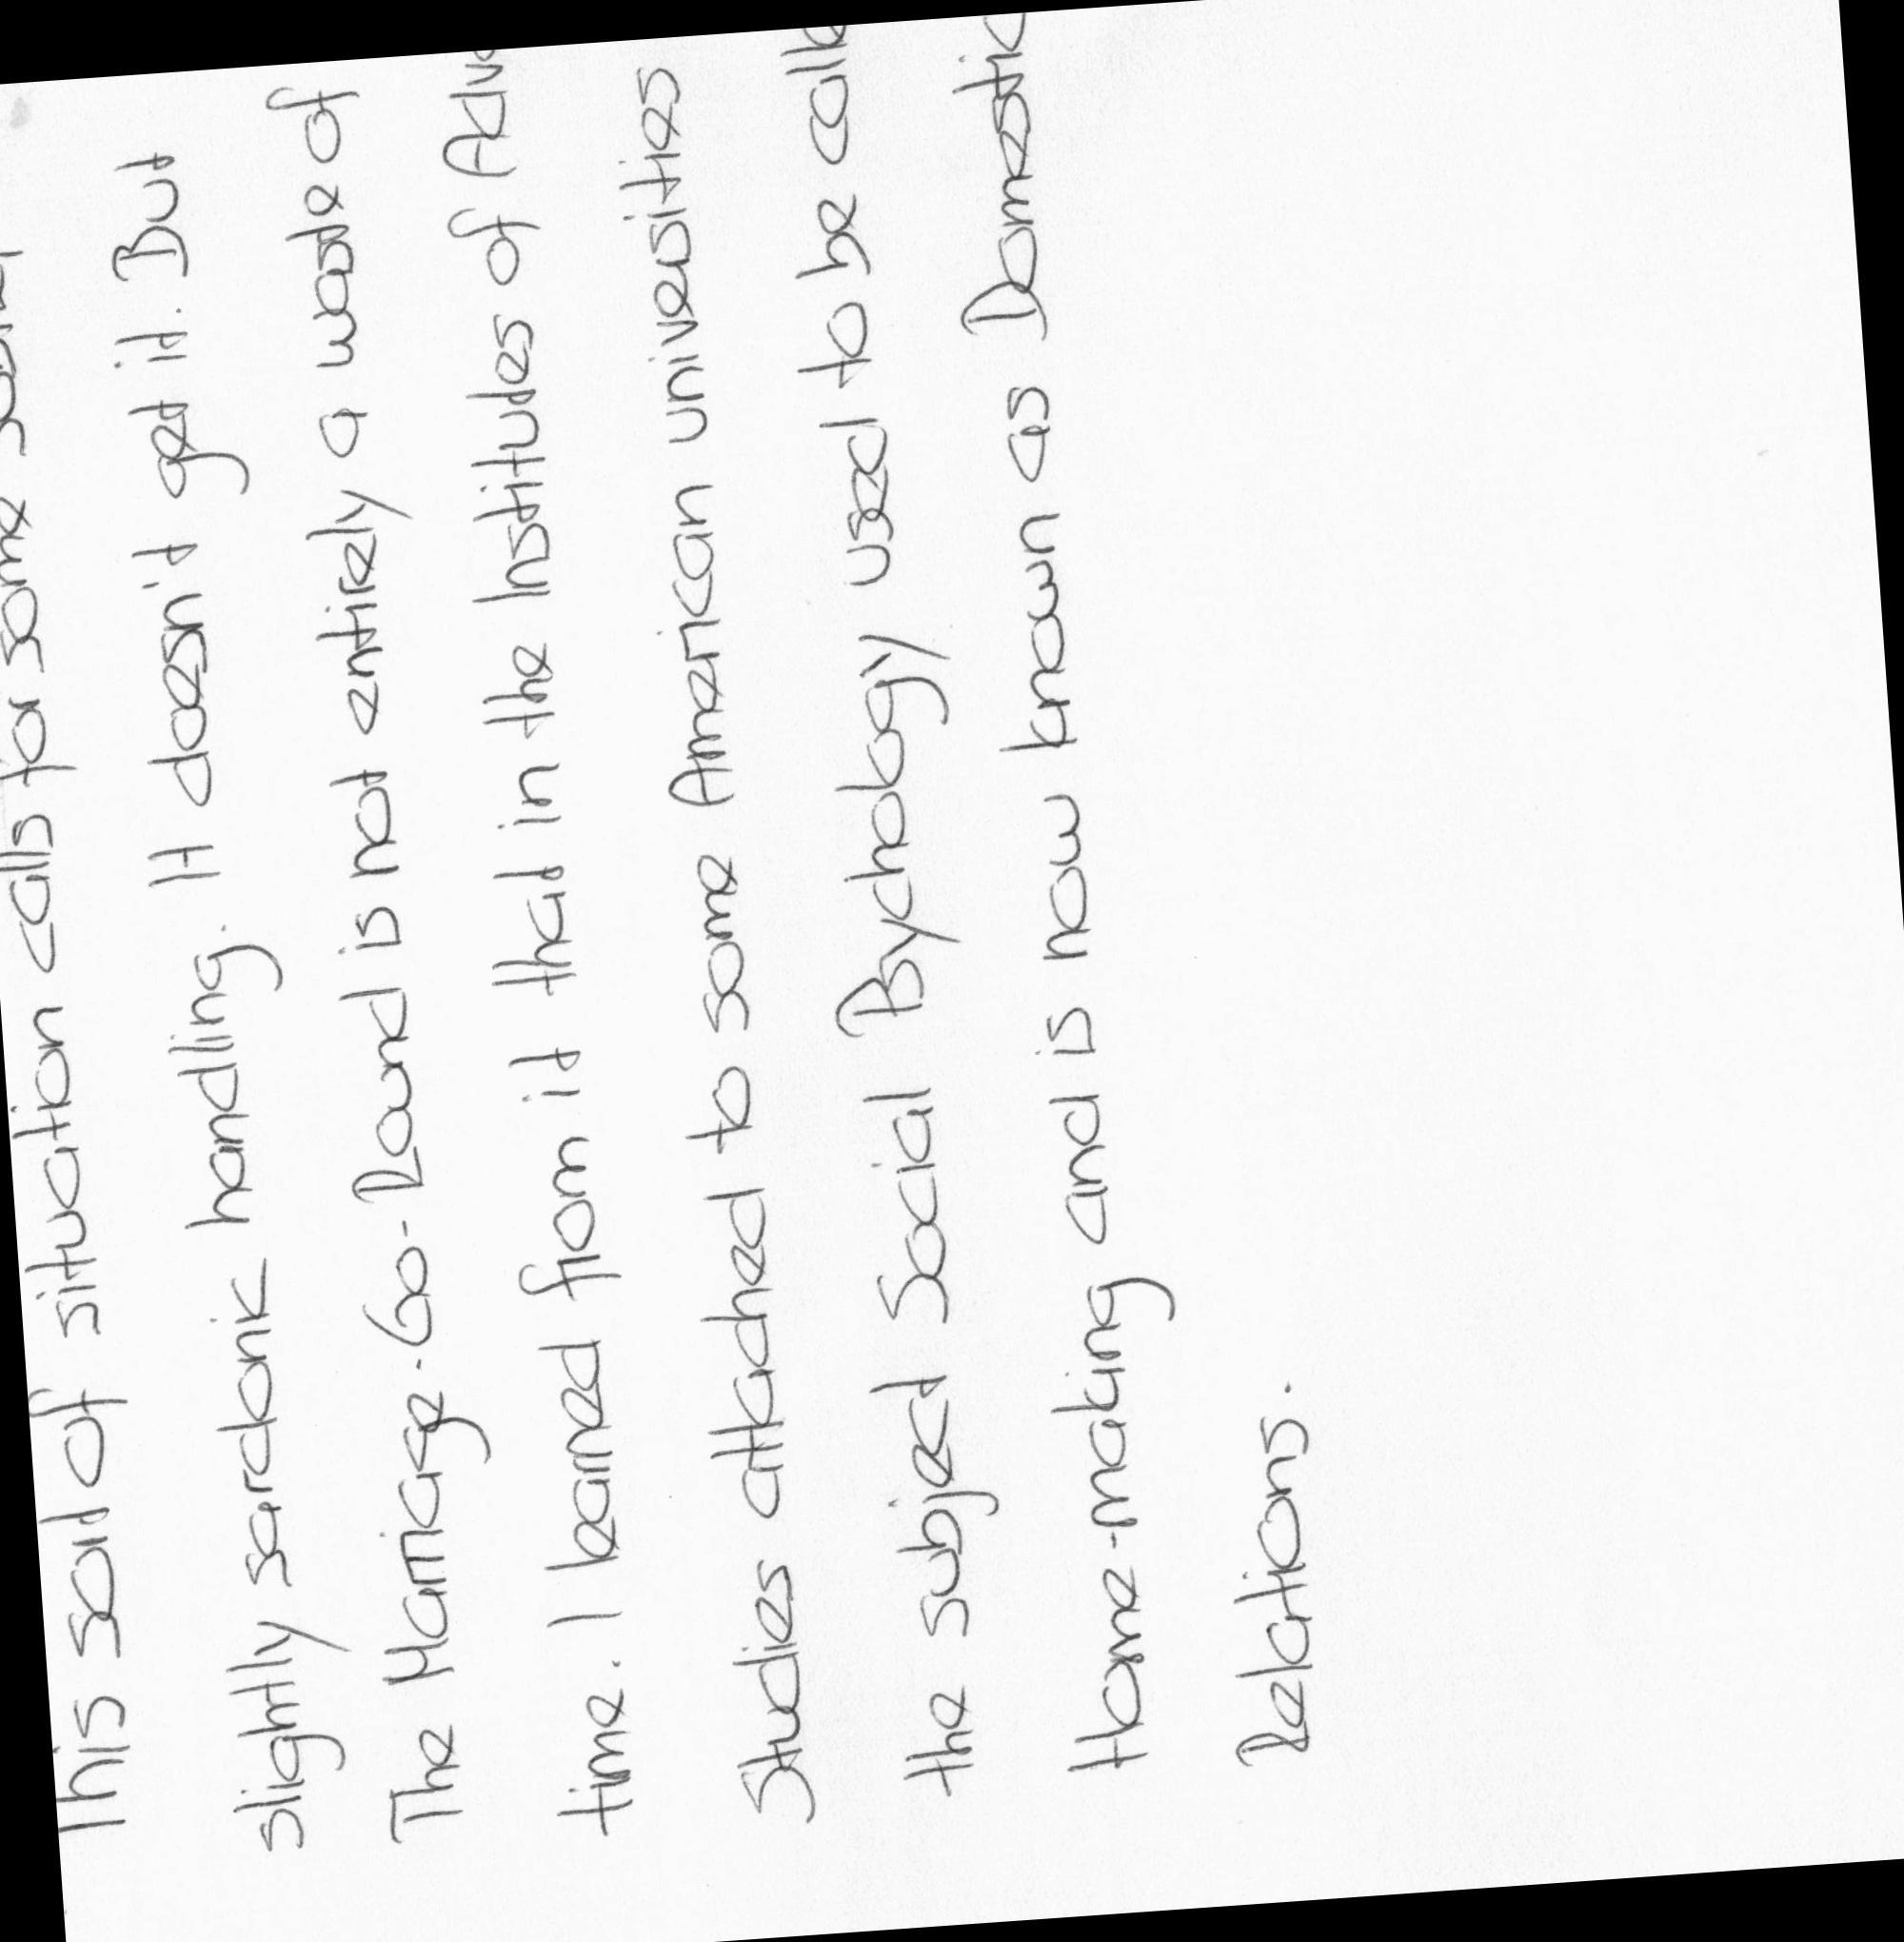 This sort of situation calls for some
slightly sardonic handling. It doesn't get it. But
The Marriage-Go-Round is not entirely a waste of
time. I learned from it that in the Institutes of
Studies attached to some American universities
the subject Social Psychology used to be
Home-making and is now known as Domestic
Relations.